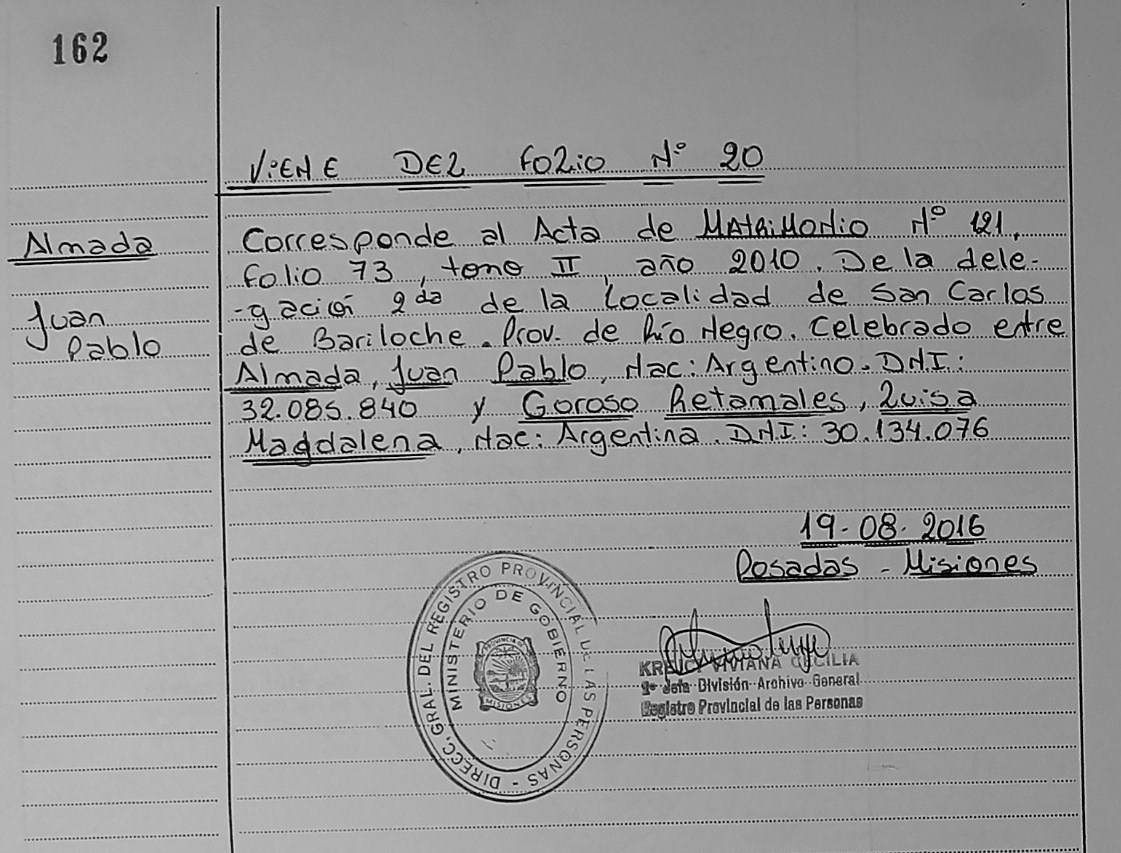 162
VIENE DEL FOLIO N° 20
Almada
Juan
Pablo
Corresponde al Acta de MAtRiMoNio N° 121,
Folio 73, tomo II, año 2010. De la dele-
-gación 2da de la Localidad de San Carlos
de Bariloche. Prov. de Río Negro. Celebrado entre
Almada, Juan Pablo, Nac: Argentino. DNI:
32.085.840 y Goroso Retamales, Luisa
Magdalena, Nac: Argentina. DNI: 30.134.076
19-08-2016
Posadas - Misiones
DIRECC. GRAL. DEL REGISTRO PROVINCIAL DE LAS PERSONAS - POSADAS -
MINISTERIO DE GOBIERNO
PROVINCIA DE
MISIONES
VIVIANA CECILIA
2° Jefe División Archivo General
Registro Provincial de las Personas